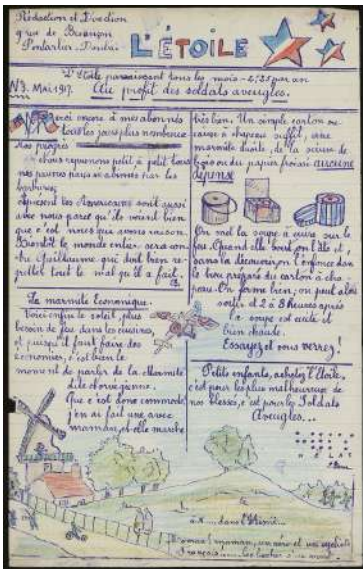 Rédaction et Direction
9 rue de Besançon
Pontarlier - Doubs
L'ÉTOILE
L'Etoile paraissant tous les mois - 2,25 par an
N3. Mai 1917. Au profit des soldats aveugles.
Merci encore à mes abonnés
tous les jours plus nombreux
Les progrès
nous reprenons petit à petit tous
nos pauvres pays si abîmés par les
barbares;
à présent les Américains sont aussi
avec nous parce qu'ils voient bien
que c'est nous qui avons raison.
Bientôt le monde entier sera con-
tre Guillaume qui doit bien re-
gretter tout le mal qu'il a fait.
La marmite Economique.
Voici enfin le soleil, plus
besoin de feu dans les cuisines,
et puisqu'il faut faire des
économies, c'est bien le
moment de parler de la Marmite
dite norvégienne.
Que c'est donc commode
j'en ai fait une avec
maman, et elle marche
très bien. Un simple carton ou
caisse à chapeau suffit, une
marmite droite, de la sciure de
bois ou du papier froissé aucune
dépense
On met la soupe à cuire sur le
feu. Quand elle bout on l'ôte et,
sans la découvrir on l'enfonce dans
le trou préparé du carton à cha-
peau. On ferme bien, on peut aller
sortir et 2 à 3 heures après
la soupe est cuite et
bien chaude.
Essayez et vous verrez!
Petits enfants, achetez l'Etoile,
c'est pour les plus malheureux de
nos blessés, c'est pour les Soldats
Aveugles...
dans l'Aisne...
maman, un aéro et un cycliste
Français